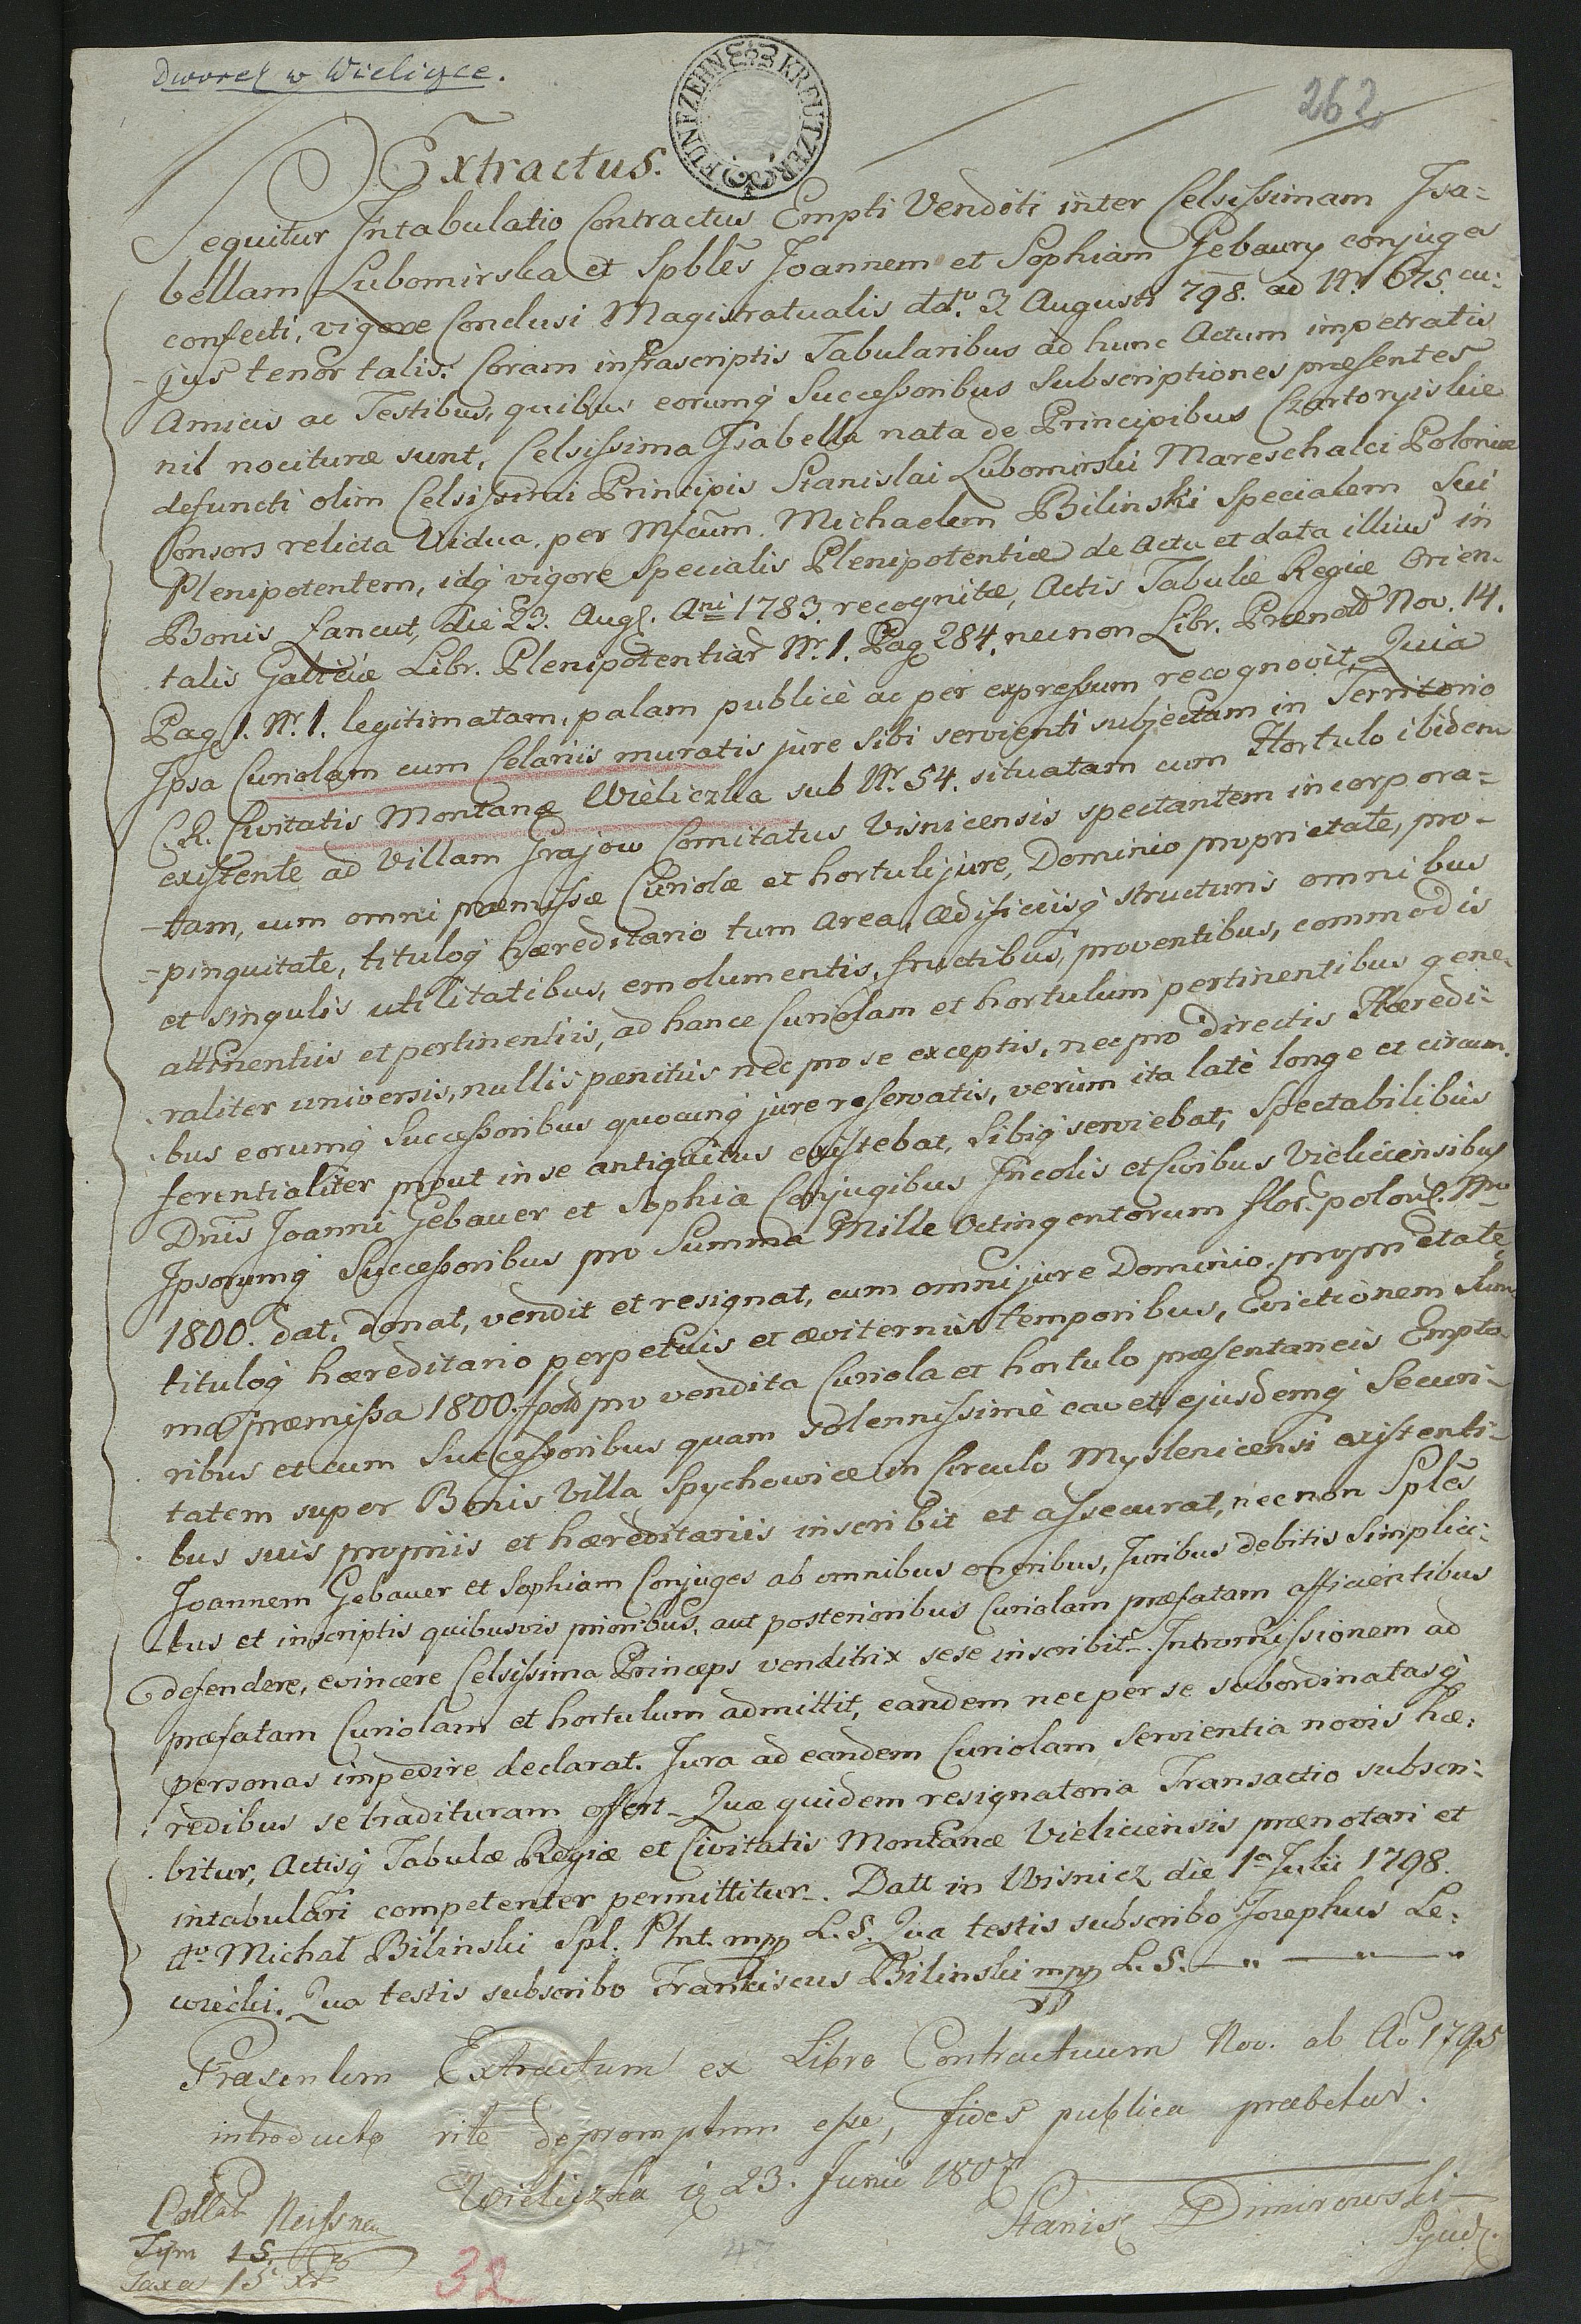 Dworek w Wieliczce.
FUNFZEHN KREUTZER
262
Extractus.
Sequitur Intabulatio Contractus Empti Venditi inter Celsissimam Isa=
bellam Lubomirska et Spbles Joannem et Sophiam Gebaury conjuges
confecti, vigore Conclusi Magistratualis ddo. 3 Augusti 798. ad Nr. 675. cu:
jus tenor talis: Coram infrascriptis Tabularibus ad hunc Actum impetratis
Amicis ac Testibus, quibus eorumq Successoribus Subscriptiones præsentes
nil nocituræ sunt, Celsissima Isabella nata de Principibus Czartoryiskie
defuncti olim Celsissimi Principis Stanislai Lubomirski Mareschalci Poloniæ
Consors relicta Vidua, per Mfcum. Michaelem Bilinski Specialem Sui
Plenipotentem, idq vigore Specialis Plenipotentiæ de Actu et data illius in
Bonis Lancut, die 23. Aug. Ani 1783. recognitæ, Actis Tabulæ Regiæ Orien-
talis Galiciæ Libr. Plenipotentiar Nr. 1. Pag 284. nec non Libr. Prænot Nov. 14.
Pag 1. Nr. 1. legitimatam, palam publicè ac per expressum recognovit, Quia
Ipsa Curiolam cum Celariis muratis jure Sibi servienti subjectam in Territorio
C.R. Civitatis Montanæ Wieliczka sub Nr. 54. situatam cum Hortulo ibidem
existente ad Villam Grajow Comitatus Visnicensis spectantem incorpora=
-tam, cum omni præmissæ Curiolæ et hortuli jure, Dominio proprietate, pro-
-pinquitate, tituloq hæreditario tum Area, Ædificiisq structuris omnibus
et singulis utilitatibus, emolumentis, fructibus, proventibus, commodis
attinentiis et pertinentiis, ad hance Curiolam et hortulum pertinentibus gene-
raliter universis, nullis pænitus nec pro se exceptis, nec pro directis Hæredi-
bus eorumq Successoribus quocunq jure reservatis, verum ita latè longe et circum
ferentialiter prout in se antiquitus existebat, Sibiq serviebat, Spectabilibus
Dnis Joanni Gebauer et Sophiæ Conjugibus Incolis et Civibus Vieliciensibus
Ipsorumq Successoribus pro Summa Mille Octingentorum flor. polon. Nro
1800. dat, donat, vendit et resignat, cum omni jure Dominio, proprietate,
tituloq hæreditario perpetuis et æviternis temporibus, Evictionem Sum-
ma præmissa 1800. fpol pro vendita Curiola et hortulo præsentaneis Empto-
ribus et eum Successoribus quam solennissimè cavet, ejusdemq Securi-
tatem super Bonis Villa Spychowice in Circulo Myslenicensi existenti-
bus suis propriis et hæreditariis inscribit et assecurat, nec non Sples
Joannem Gebauer et Sophiam Conjuges ab omnibus oneribus, Juribus debitis Simplici-
bus et inscriptis quibusvis prioribus, aut posterioribus Curiolam præfatam afficientibus
defendere, evincere Celsissima Princeps venditrix sese inscribit-. Intromissionem ad
præfatam Curiolam et hortulum admittit, eandem nec per se subordinatasq
personas impedire declarat. Jura ad eandem Curiolam servientia novis hæ-
redibus se tradituram offert - Quæ quidem resignatoria Transactio subscri-
bitur, Actisq Tabulæ Regiæ et Civitatis Montanæ Vieliciensis prænotari et
intabulari competenter permittitur-. Datt in Wisnicz die 1a Julii 1798.
Michal Bilinski Spl. Plnt. mpp L.S. Qua testis subscribo Josephus Le-
wiecki. Qua testis subscribo Franciscus Bilinski mpp L.S.
Præsentem Extractum ex Libro Contractuum Nov. ab Ao 1795
introducto rite depromptum esse, fides publica præbetur.
Wieliczka 23. Junii 1807
Stanis Dimirowski
Synd.
Collat Neissner
Tym 15. Xr
Taxa 15 Xr
32
47